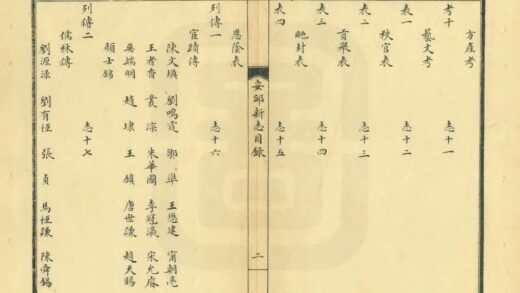 方產考
考十 志十一
藝文考
表一 志十二
秩官表
表二 志十三
貢舉表
表三 志十四
馳封表
表四 志十五
安邱新志目錄 二
恩蔭表
列傳一 志十六
宦蹟傳
陳文煥 劉鳴霆 鄒準 王懋建 甯朝亮
王者香 叢 朱華國 李冠瀛 宋允睿
吳端明 趙埭 王鎮 唐世謙 趙天賜
顧士錦
列傳二 志十七
儒林傳
劉源淥 劉有恆 張貞 馬恆謙 陳舜錫